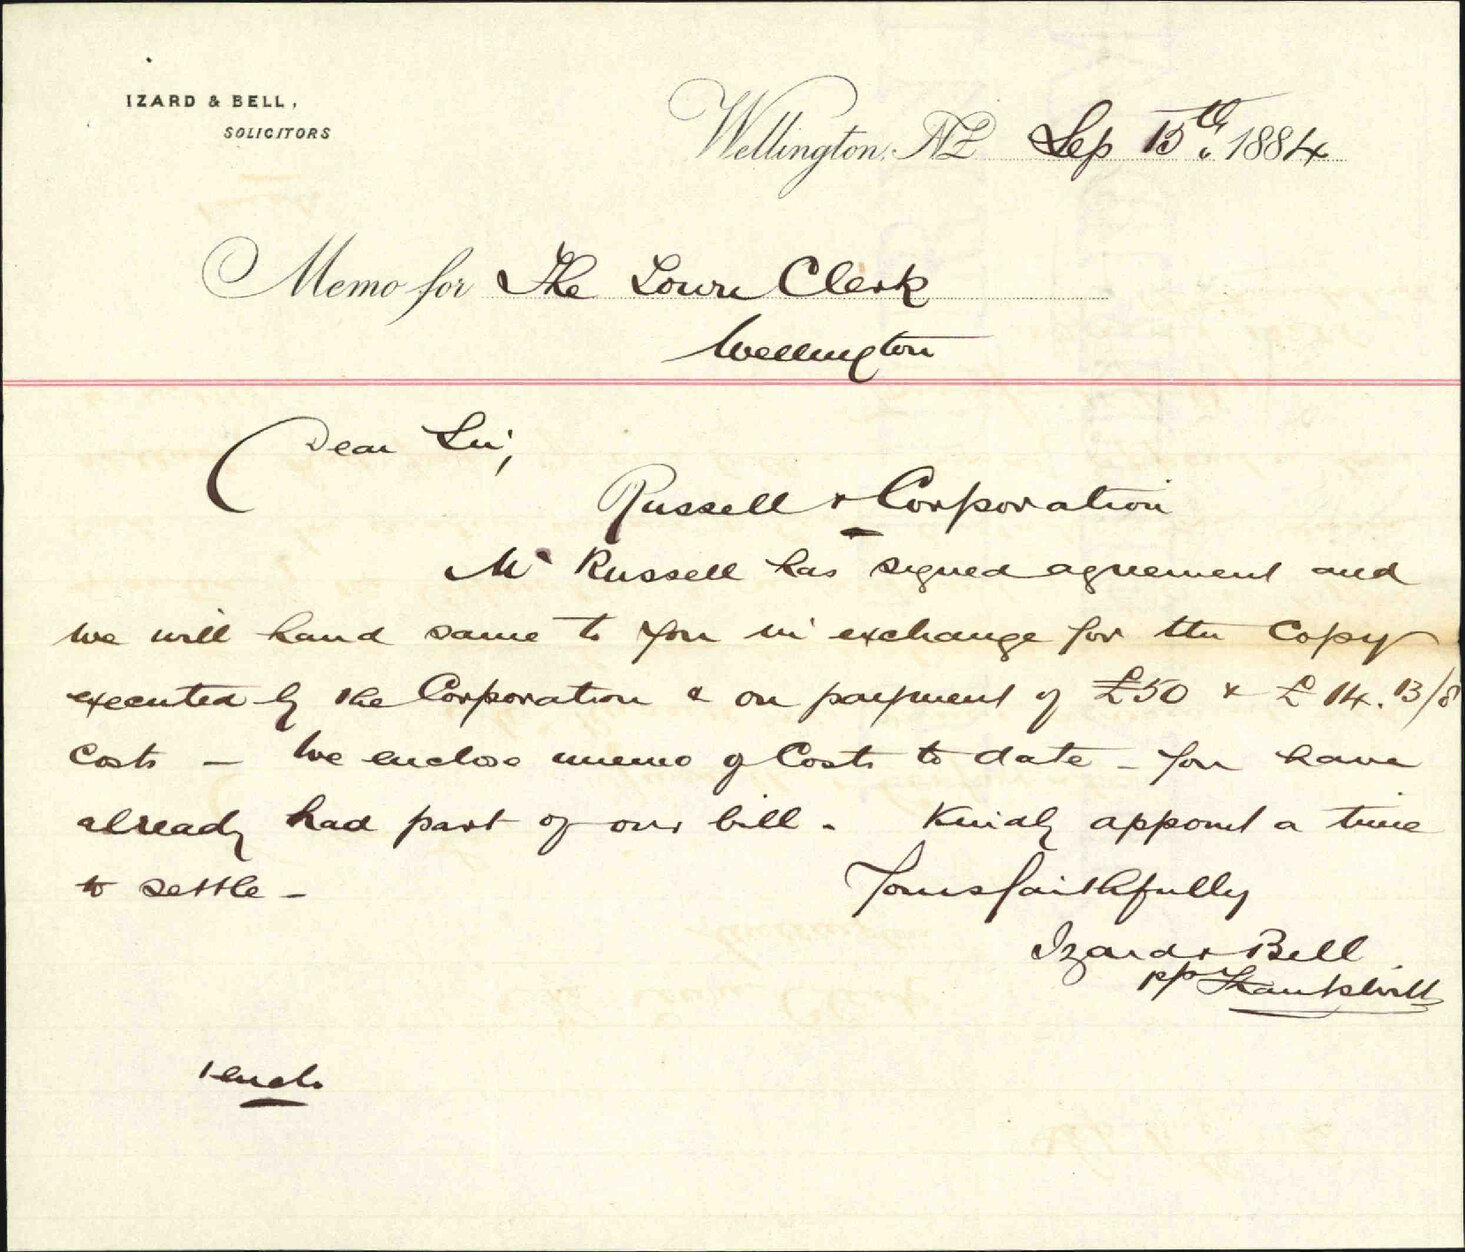 IZARD & BELL,
SOLICITORS
Wellington, NZ Sep 15th. 1884
Memo for The Town Clerk
Wellington
Dear Sir,
Russell & Corporation
Mr Russell has signed agreement and
we will hand same to you in exchange for the Copy
executed by the Corporation & on payment of £50 & £14.13/8
costs – We enclose memo of Costs to date – You have
already had part of our bill. Kindly appoint a time
to settle –
Yours faithfully
Izard & Bell
pp
1 encl.